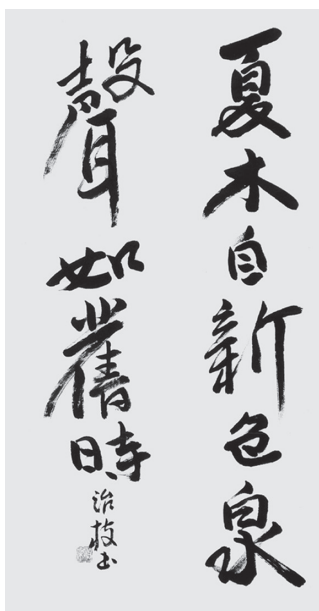 夏木自新色泉
聲如舊時
治枝书